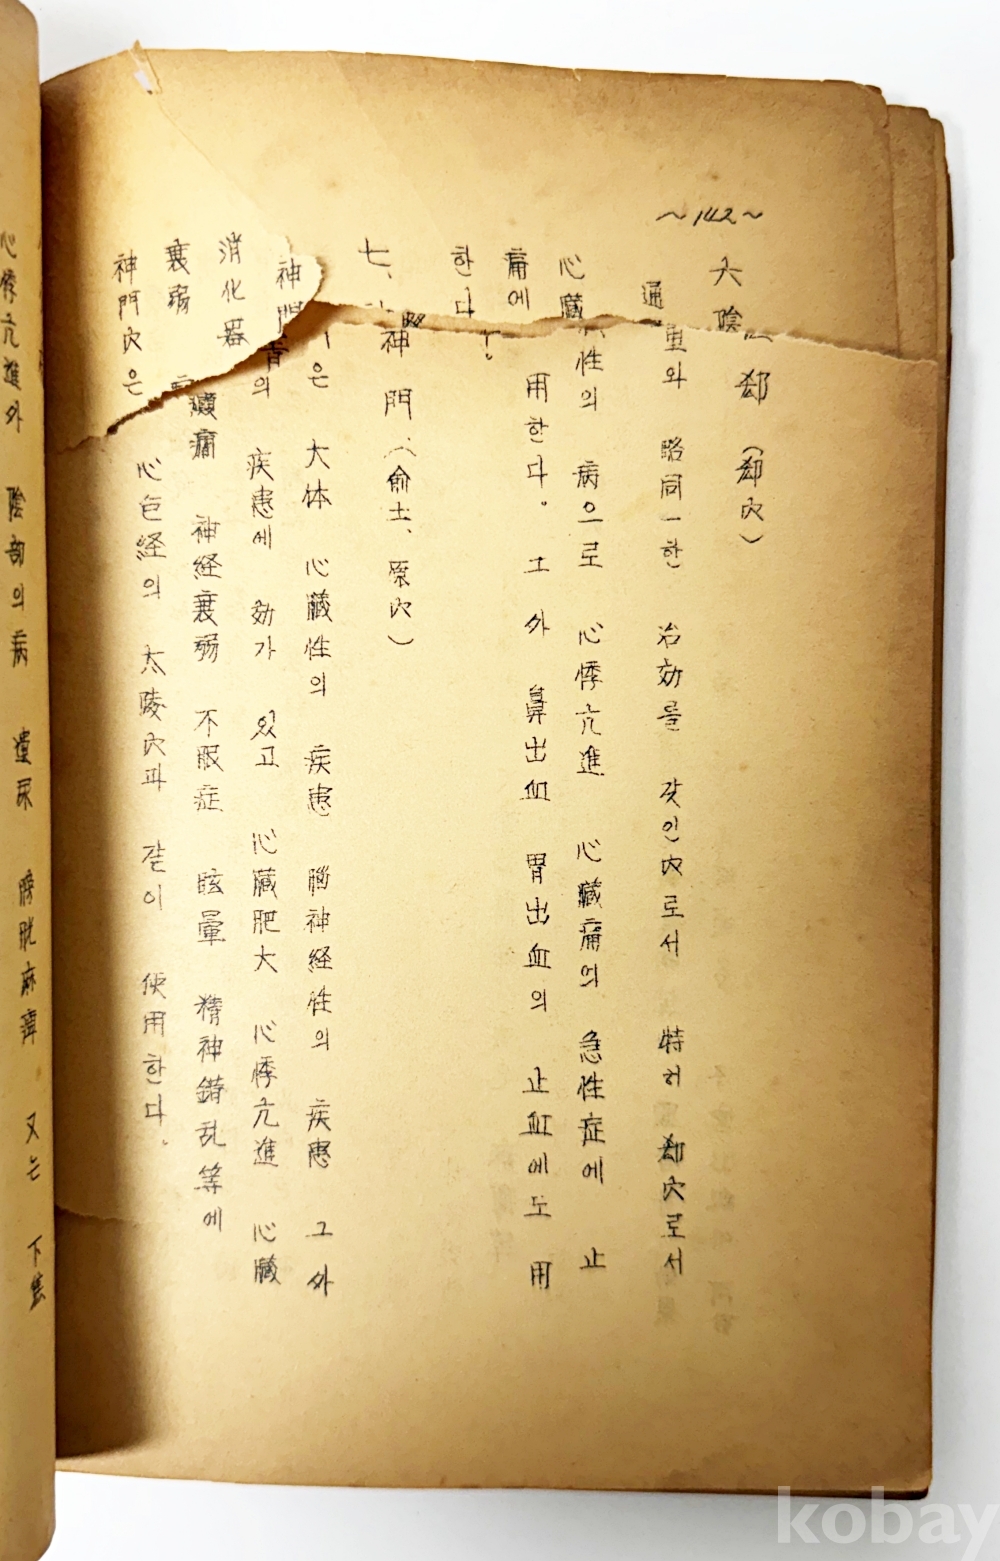 ~142~
六、陰郄(郄穴)
通里와 略同一한 治効를 갖인 穴로서 特히 郄穴로서
心臟性의 病으로 心悸亢進 心臟痛의 急性症에 止
痛에 用한다. 그 外 鼻出血 胃出血의 止血에도 用
한다.
七、神門(兪土、原穴)
神門은 大体 心臟性의 疾患 腦神経性의 疾患 그 外
消化器의 疾患에 効가 있고 心臟肥大 心悸亢進 心臟
衰弱 癲癎 神経衰弱 不眠症 眩暈 精神錯乱等에
神門穴은 心包経의 太陵穴과 같이 使用한다.
心悸亢進外 陰部의 病 遺尿 膀胱麻痺 又는 下焦
kobay